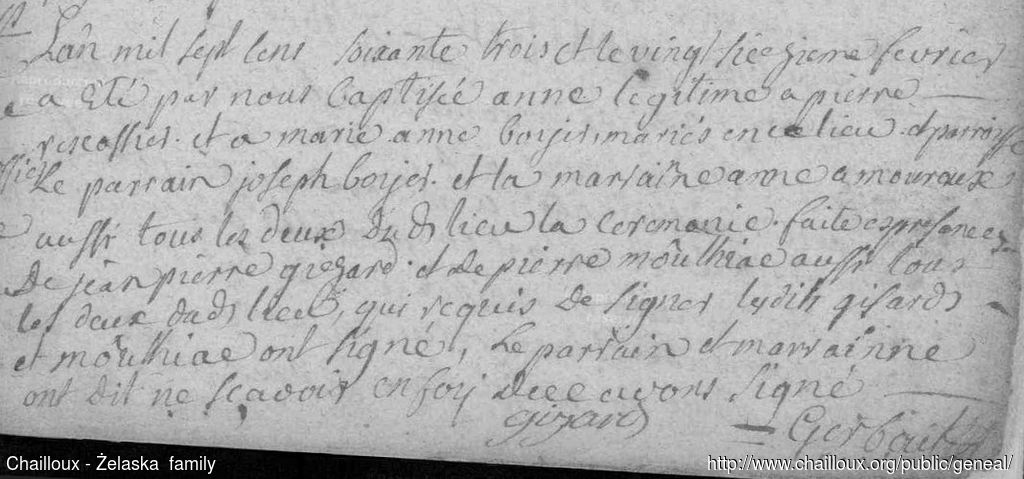 Lan mil sept cens soixante trois et le vingt sièzieme fevrier
a eté par nous baptisée anne legitime a pierre
rescossier et a marie anne borjes, mariés en ce lieu et parroisse
Le parrain joseph borjes et la marraine anne amouroux
aussi tous les deux dud lieu la ceremonie faite es presences
De jean pierre gizard et de pierre moûlhiac aussi tous
les deux dud lieu, qui requis de signer lesdits gisard
et moûlhiac ont signé, Le parrain et marrainne
ont dit ne scavoir en foy de ce avons signé
gizard
Gerbail
Chailloux - Żelaska family
http://www.chailloux.org/public/geneal/